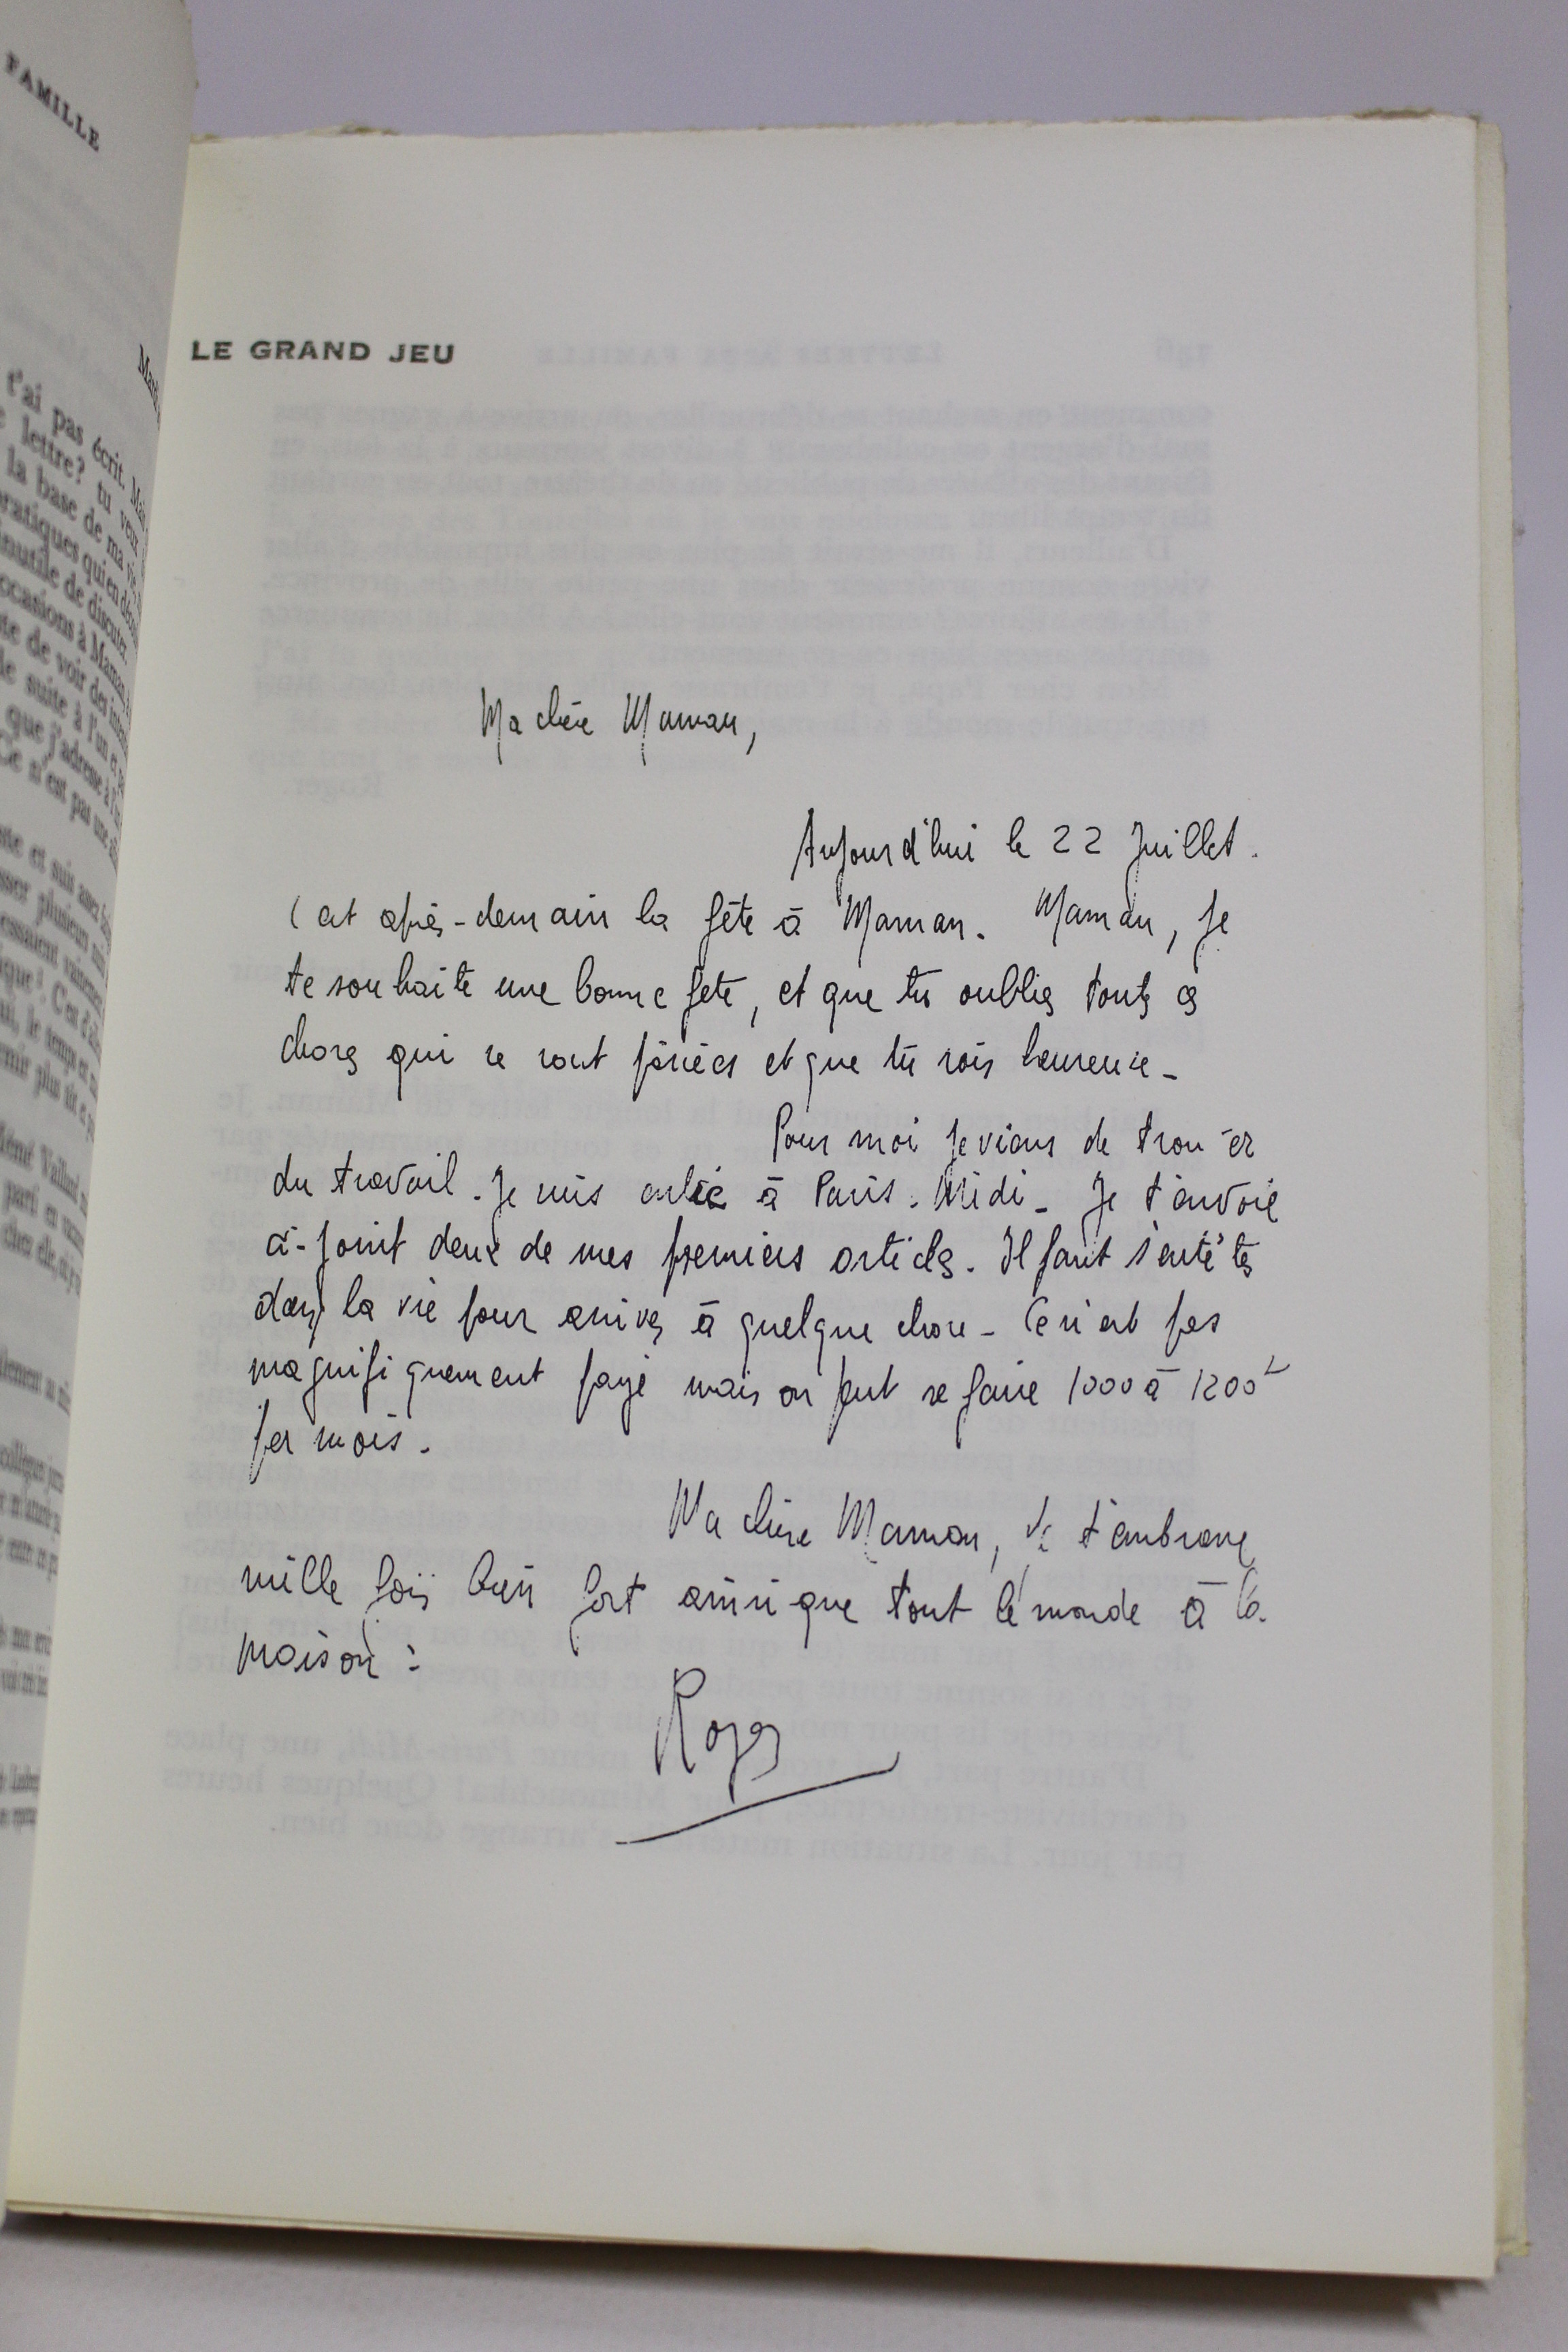 FAMILLE
t'ai pas écrit.
lettre? tu veux
la base de ma vie
pratiques qui en
inutile de discuter.
occasions à Maman
de voir des
suite à l'un et
que j'adresse à
Ce n'est pas une
et suis assez
plusieurs
LE GRAND JEU
Ma chère Maman,
Aujourd'hui le 22 Juillet.
C'est après-demain la fête à Maman. Maman, je
te souhaite une bonne fête, et que tu oublies toutes ces
choses qui se sont passées et que tu sois heureuse -
Pour moi je viens de trouver
du travail. Je suis entré à Paris-Midi - Je t'envoie
ci-joint deux de mes premiers articles. Il faut s'entêter
dans la vie pour arriver à quelque chose - Ce n'est pas
magnifiquement payé mais on peut se faire 1000 à 1200
par mois.
Ma chère Maman, je t'embrasse
mille fois bien fort ainsi que tout le monde à la
maison :
Roger